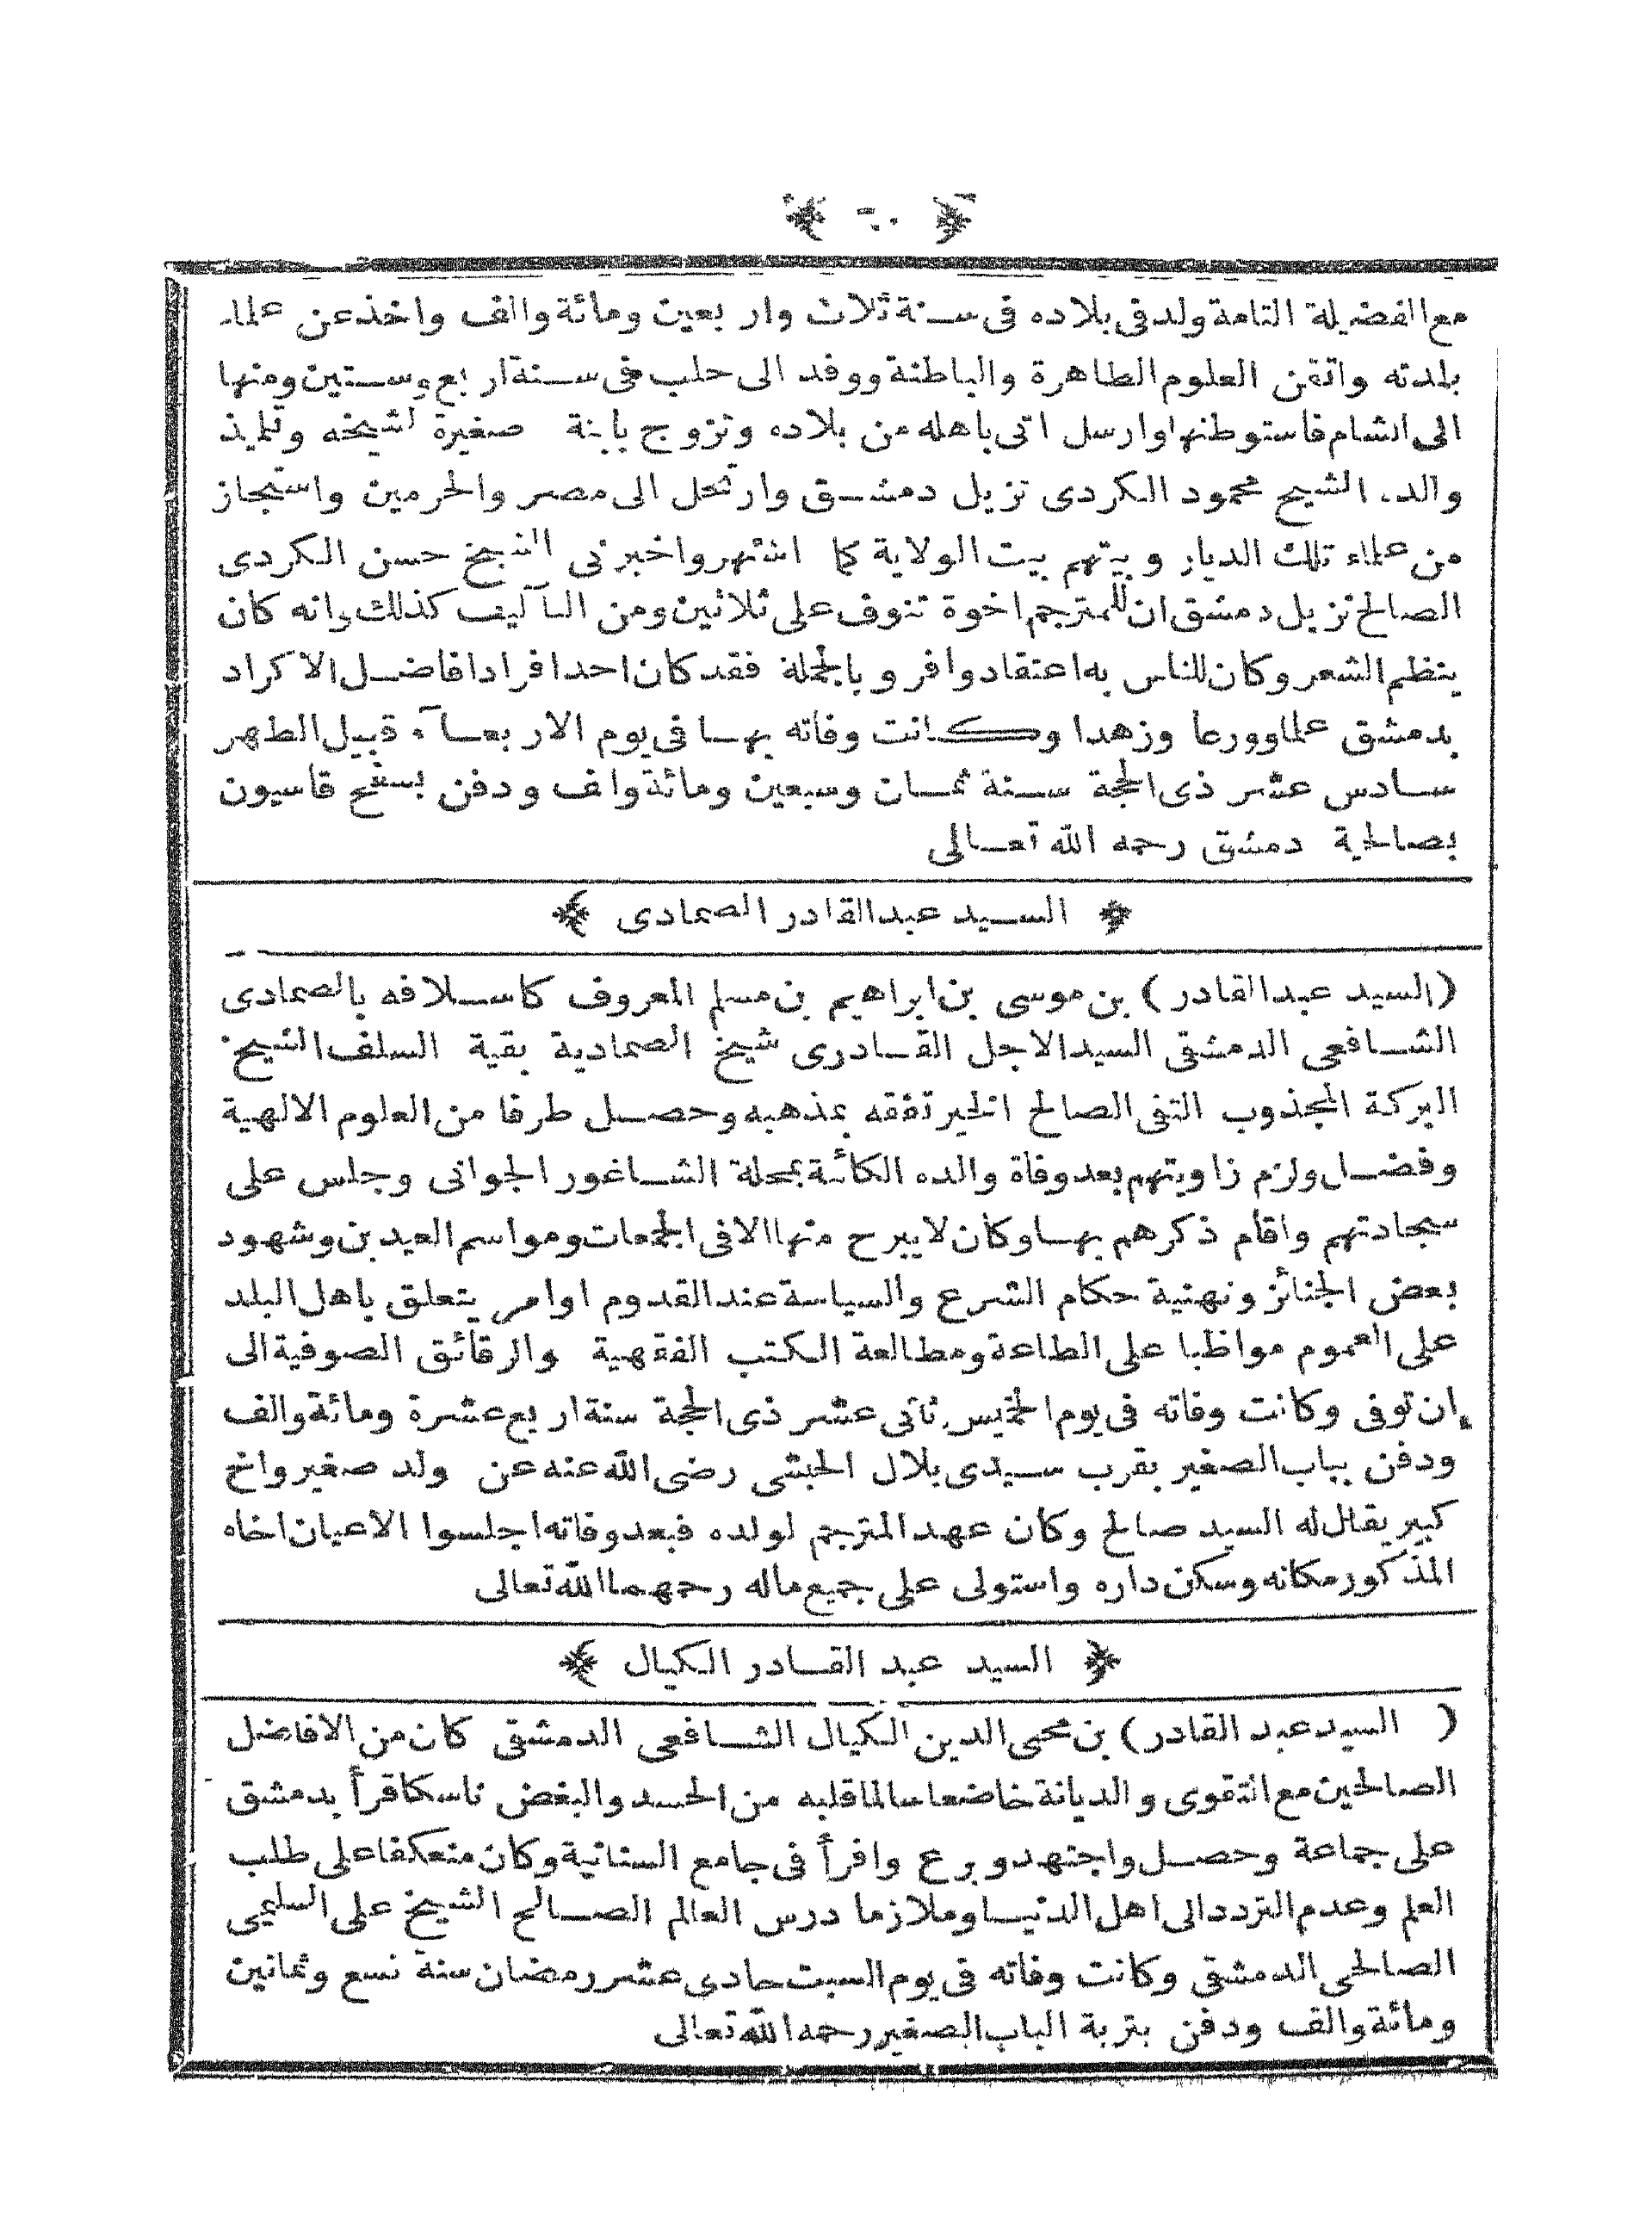 مع الفضيلة التامة ولد فى بلاده فى سنة ثلاث وار بعين ومائة والف واخذ عن علماء
بلدته واتقن العلوم الظاهرة والباطنة ووفد الى حلب فى سنة ار بع وستين ومنها
الى الشام فاستوطنها وارسل اتى باهله من بلاده وتزوج بابنة صغيرة لشيخه وتلميذ
والده الشيخ محمود الكردى نزيل دمشق وارتحل الى مصر والحرمين واستجاز
من علماء تلك الديار و بيتهم بيت الولاية كما اشتهر واخبرنى الشيخ حسن الكردى
الصالح نزيل دمشق ان للمترجم اخوة تنوف على ثلاثين ومن التآليف كذلك وانه كان
ينظم الشعر وكان للناس به اعتقاد وافر و بالجملة فقد كان احد افراد افاضل الاكراد
بدمشق علما وورعا وزهدا وكانت وفاته بها فى يوم الار بعاء قبيل الظهر
سادس عشر ذى الحجة سنة ثمان وسبعين ومائة والف ودفن بسفح قاسيون
بصالحية دمشق رحمه الله تعالى
﴿ السيد عبد القادر الصمادى ﴾
(السيد عبد القادر) بن موسى بن ابراهيم بن مسلم المعروف كاسلافه بالصمادى
الشافعى الدمشقى السيد الاجل القادرى شيخ الصمادية بقية السلف الشيخ
البركة المجذوب التقى الصالح الخير تفقه بمذهبه وحصل طرفا من العلوم الالهية
وفضل ولزم زاويتهم بعد وفاة والده الكائنة بمحلة الشاغور الجوانى وجلس على
سجادتهم واقام ذكرهم بها وكان لا يبرح منها الا فى الجمعات ومواسم العيدين وشهود
بعض الجنائز وتهنية حكام الشرع والسياسة عند القدوم او امر يتعلق باهل البلد
على العموم مواظبا على الطاعة ومطالعة الكتب الفقهية والرقائق الصوفية الى
ان توفى وكانت وفاته فى يوم الخميس ثانى عشر ذى الحجة سنة ار بع عشرة ومائة والف
ودفن بباب الصغير بقرب سيدى بلال الحبشى رضى الله عنه عن ولد صغير واخ
كبير يقال له السيد صالح وكان عهد المترجم لولده فبعد وفاته اجلسوا الاعيان اخاه
المذكور مكانه وسكن داره واستولى على جميع ماله رحمهما الله تعالى
﴿ السيد عبد القادر الكيال ﴾
( السيد عبد القادر) بن محيى الدين الكيال الشافعى الدمشقى كان من الافاضل
الصالحين مع التقوى والديانة خاضعا سالما قلبه من الحسد والبغض ناسكا قرأ بدمشق
على جماعة وحصل واجتهد و برع واقرأ فى جامع السنانية وكان منعكفا على طلب
العلم وعدم التردد الى اهل الدنيا وملازما درس العالم الصالح الشيخ على السليمى
الصالحى الدمشقى وكانت وفاته فى يوم السبت حادى عشر رمضان سنة تسع وثمانين
ومائة والف ودفن بتربة الباب الصغير رحمه الله تعالى